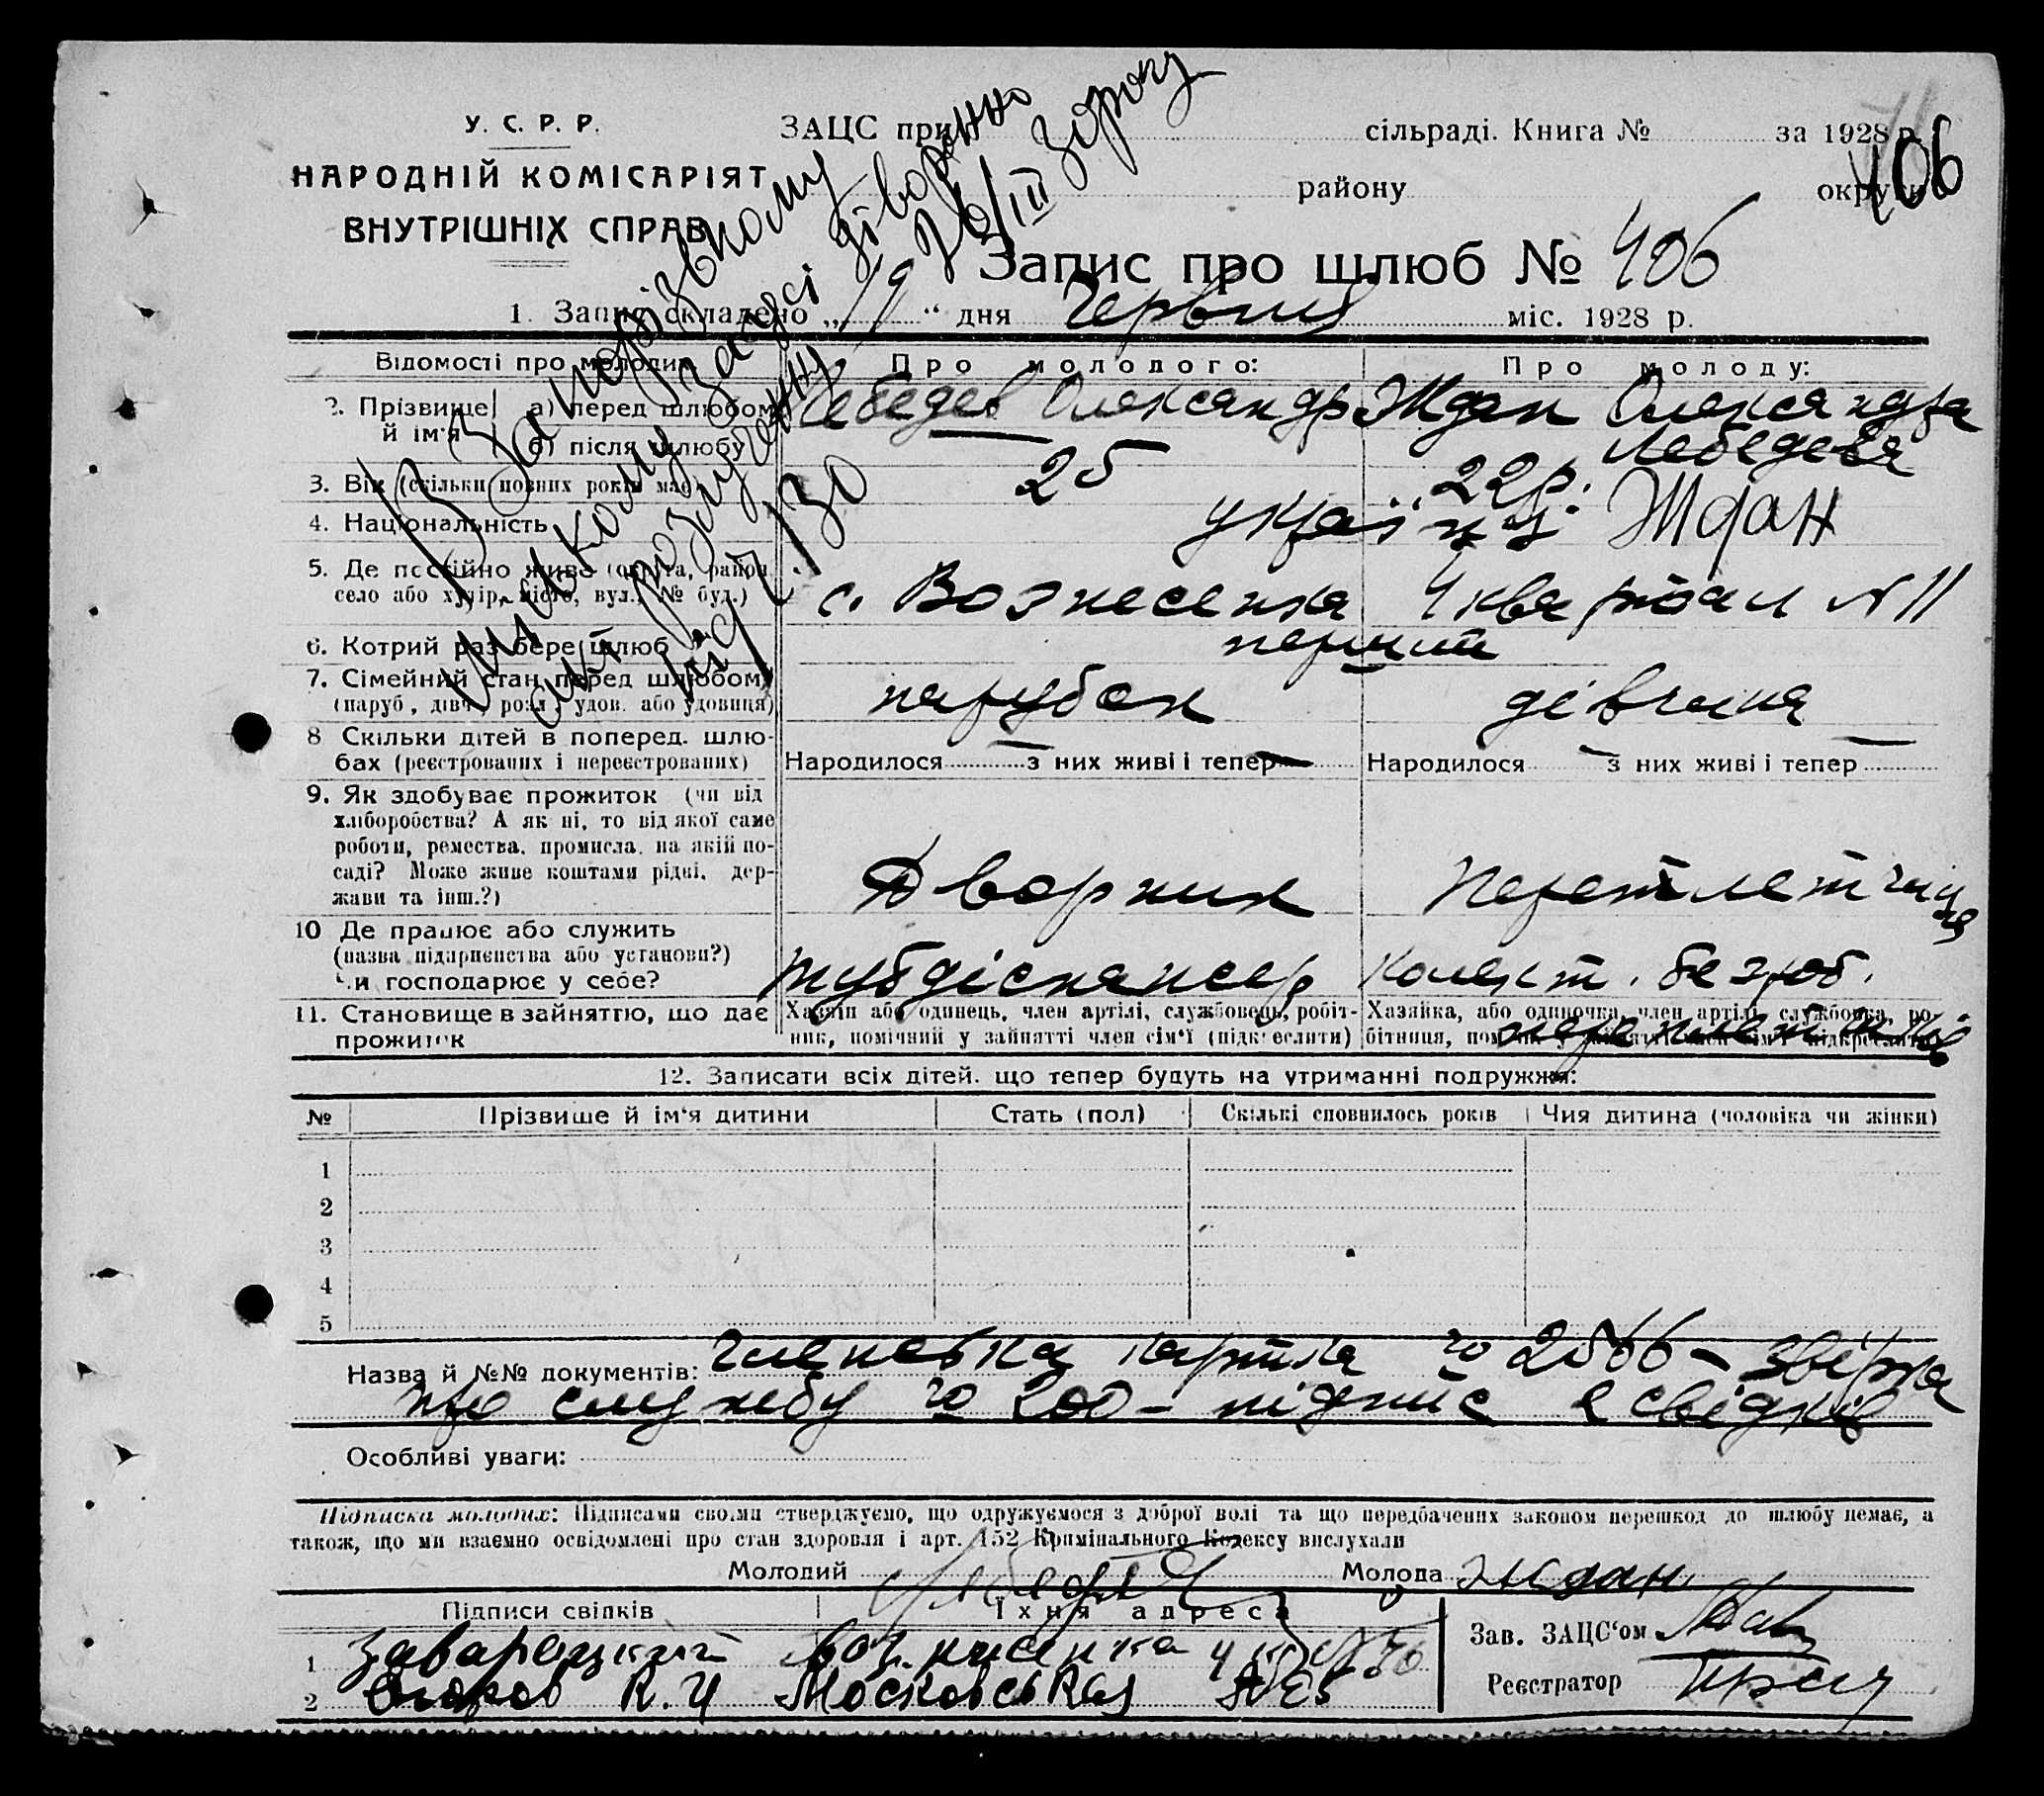 У. С. Р. Р.
НАРОДНІЙ КОМІСАРІЯТ
ВНУТРІШНІХ СПРАВ
ЗАЦС при сільраді. Книга № за 1928 р.
району округи
406
Запис про шлюб № 406
1. Запис складено „19“ дня Червня міс. 1928 р.
В Запорізькому
міському Загсі створенно
акт розлучення 26/III 30 року
Відомості про молодих Про молодого: Про молоду:
2. Прізвище й ім'я а) перед шлюбом Лебедев Олександр Ждан Олександра
б) після шлюбу — Лебедева
3. Вік (скільки повних років має) 25 22р.
Ждан
4. Національність україн.
5. Де постійно живе (округа, район, село або хутір, місто, вул., № буд.) с. Вознесенка 4 квартал № 11
6. Котрий раз бере шлюб перший
7. Сімейний стан перед шлюбом (паруб., дівч., розл., удов. або удовиця) парубок дівчина
8 Скільки дітей в поперед. шлюбах (реєстрованих і нереєстрованих) Народилося — з них живі і тепер — Народилося — з них живі і тепер —
9. Як здобуває прожиток (чи від хліборобства? А як ні, то від якої саме роботи, ремества, промисла, на якій посаді? Може живе коштами рідні, держави та інш.?) Дворник Переплетчиця
10 Де працює або служить (назва підприємства або установи?) Чи господарює у себе? тубдіспансер Колект. безроб.
11. Становище в зайняттю, що дає прожиток Хазяїн або одинець, член артілі, службовець, робітник, помічний у зайнятті член сім'ї (підкреслити) Хазяйка, або одиночка, член артілі, службовка, робітниця,
12. Записати всіх дітей, що тепер будуть на утриманні подружжя:
№ Прізвище й ім'я дитини Стать (пол) Скількі сповнилось років Чия дитина (чоловіка чи жінки)
1
2
3
4
5
Назва й №№ документів: Членська картка 2566 – звірка
про службу 200 – підпис 2 свідків
Особливі уваги:
Підписка молодих: Підписами своїми стверджуємо, що одружуємося з доброї волі та що передбачених законом перешкод до шлюбу немає, а
також, що ми взаємно освідомлені про стан здоровля і арт. 152 Кримінального Кодексу вислухали
Молодий Молода Ждан
Підписи свідків Їхня адреса
1 Заварацкий Вознисенка 4 кв
2 К. И Московськая
Зав. ЗАЦС'ом
Реєстратор